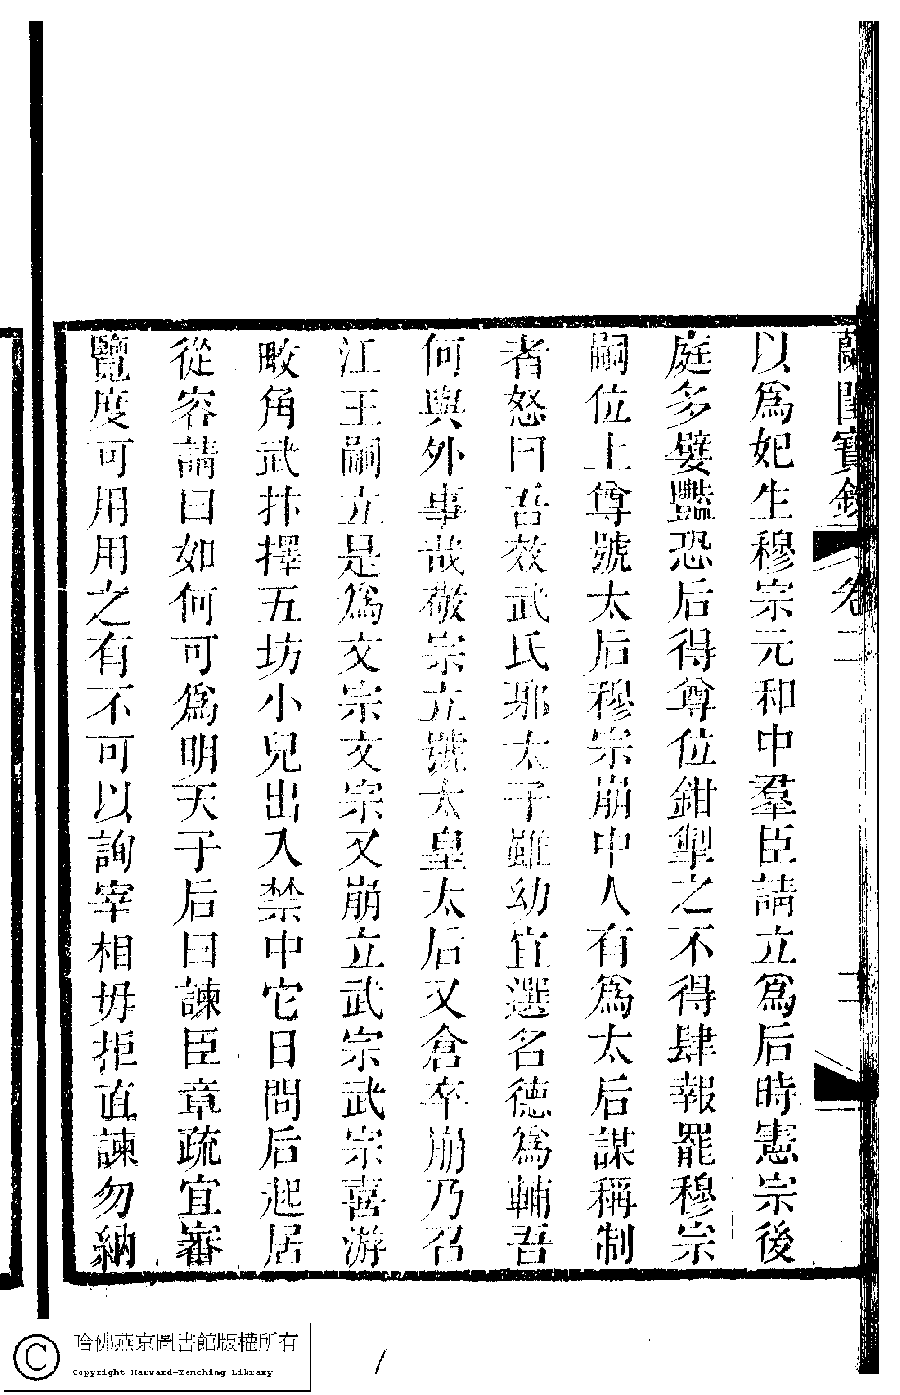 蘭閨寶錄 卷二 二
以爲妃生穆宗元和中羣臣請立爲后時憲宗後
庭多嬖豔恐后得尊位鉗掣之不得肆報罷穆宗
嗣位上尊號太后穆宗崩中人有爲太后謀稱制
者怒曰吾效武氏邪太子雖幼宜選名德爲輔吾
何與外事哉敬宗立號太皇太后又倉卒崩乃召
江王嗣立是爲文宗文宗又崩立武宗武宗喜游
畋角武抃擇五坊小兒出入禁中它日問后起居
從容請曰如何可爲明天子后曰諫臣章疏宜審
覽度可用用之有不可以詢宰相毋拒直諫勿納
哈佛燕京圖書館版權所有
Copyright Harvard-Yenching Library